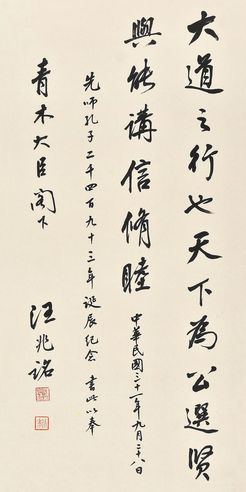 大道之行也天下為公選賢
與能講信脩睦
中華民國三十一年九月二十八日
先師孔子二千四百九十三年誕辰紀念書此以奉
青木大臣閣下
汪兆銘